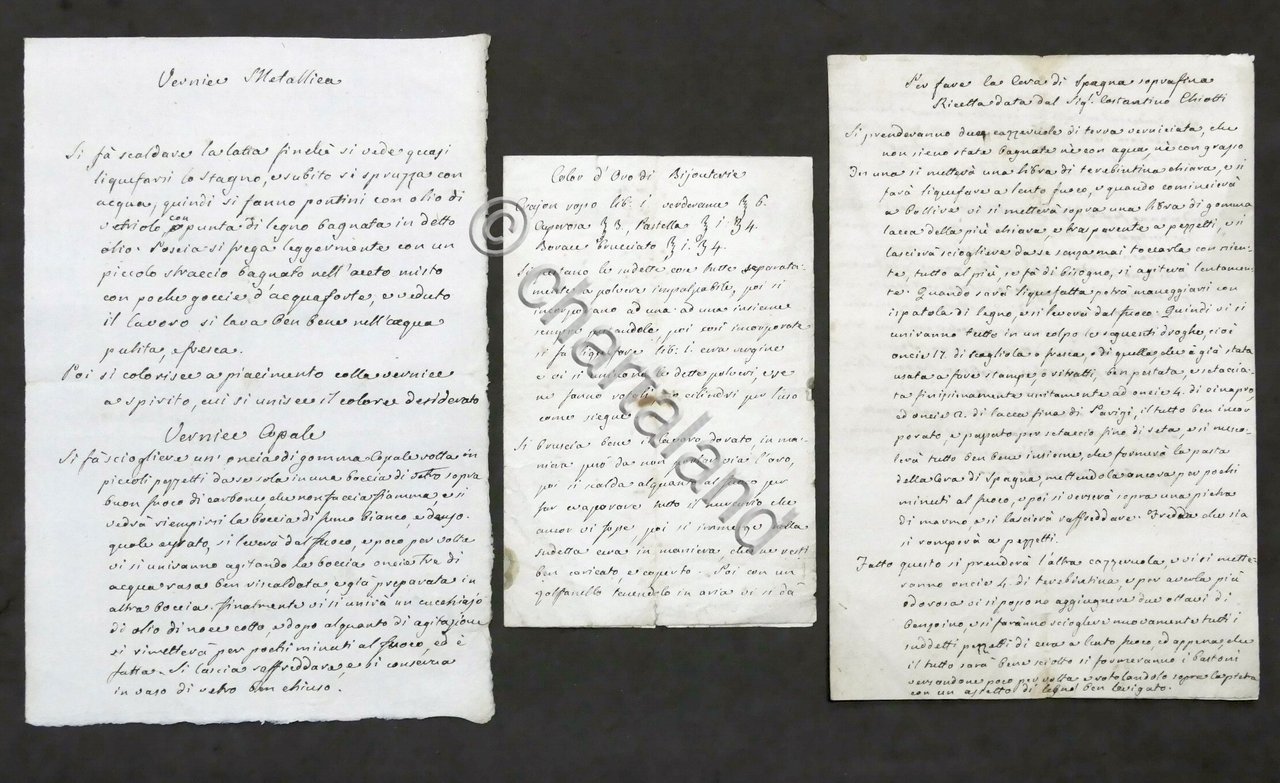 Vernice Metallica
Si fà scaldare la latta finchè si vede quasi
liquefarsi lo stagno, e subito si spruzza con
acqua, quindi si fanno pontini con olio di
vetriolo con punta di legno bagnata in detto
olio. Poscia si frega leggermente con un
piccolo straccio bagnato nell'aceto misto
con poche goccie d'acquaforte, e veduto
il lavoro si lava ben bene nell'acqua
pulita, e fresca.
Poi si colorisce a piacimento colla vernice
a spirito, cui si unisce il colore desiderato
Vernice Copale
Si fà sciogliere un'oncia di gomma Copale rotta in
piccoli pezzetti da se sola in una boccia di vetro sopra
buon fuoco di carbone che non faccia fiamma, e si
vedrà riempirsi la boccia di fumo bianco, e denso.
quale esalato, si leverà dal fuoco, e poco per volta
vi si uniranno agitando la boccia oncie tre di
acqua rasa ben riscaldata, e già preparata in
altra boccia. finalmente vi si unirà un cucchiajo
di olio di noce cotto, e dopo alquanto di agitazione
si rimetterà per pochi minuti al fuoco, ed è
fatta. Si lascia raffreddare, e si conserva
in vaso di vetro ben chiuso.
Color d'Oro di Bijouterie
Crajon rosso lib. 1. verderame ℥ 6.
Coperosa ℥ 3. ℥ 1. ʒ 4.
Borace brucciato ℥ 1. ʒ 4.
Si pestano le sudette cose tutte separata-
mente a polvere impalpabile, poi si
incorporano ad una ad una insieme
sempre poi così incorporate
si fà liquefare lib. 1. cera vergine
e vi si uniscono le dette polveri, e se
ne fanno cilindri per l'uso
come siegue
Si bruscia bene il lavoro dorato, in ma-
niera però da non portar via l'oro,
poi si scalda alquanto per
far evaporare tutto il mercurio che
ancor vi fosse, poi si nella
sudetta cera in maniera che ne resti
ben caricato, e coperto. Poi con un
tenendolo in aria vi si dà
© chartaland
Per fare la Cera di Spagna soprafina
Ricetta data dal Sig.r Costantino Chiotti
Si prenderanno due cazzeruole di terra verniciata, che
non sieno state bagnate nè con aqua, nè con grasso
In una si metterà una libra di terebintina chiara, e si
farà liquefare a lento fuoco, e quando comincierà
a bollire vi si metterà sopra una libra di gomma
lacca della più chiara, e trasparente a pezzetti, e si
lascierà sciogliere da se senza mai toccarla con nien-
te, tutto al più, se fà di bisogno, si agiterà lentamen-
te. Quando sarà liquefatta potrà maneggiarsi con
ispatola di legno, e si leverà dal fuoco. Quindi vi si
uniranno tutto in un colpo le seguenti droghe, cioè
oncie 17. di scagliola o fresca, o di quella che è già stata
usata a fare stampe, o ritratti, ben pestata, e setaccia-
ta finissimamente unitamente ad oncie 4. di cinapro,
ed oncie 2. di lacca fina di Parigi, il tutto ben incor
porato, e passato per setaccio fino di seta, e si mesco-
lerà tutto ben bene insieme, che formerà la pasta
della Cera di Spagna mettendola ancora per pochi
minuti al fuoco, e poi si verserà sopra una pietra
di marmo e si lascierà raffreddare. Fredda che sia
si romperà a pezzetti.
Fatto questo si prenderà l'altra cazzeruola, e vi si mette-
ranno oncie 4. di terebintina, e per averla più
odorosa vi si possono aggiugnere due ottavi di
benzoino, e si faranno sciogliere nuovamente tutti i
suddetti pezzetti di cera a lento fuoco, ed appena, che
il tutto sarà bene sciolto si formeranno i bastoni
versandone poco per volta e rotolandolo sopra la pietra
con un assetto di legno ben levigato.